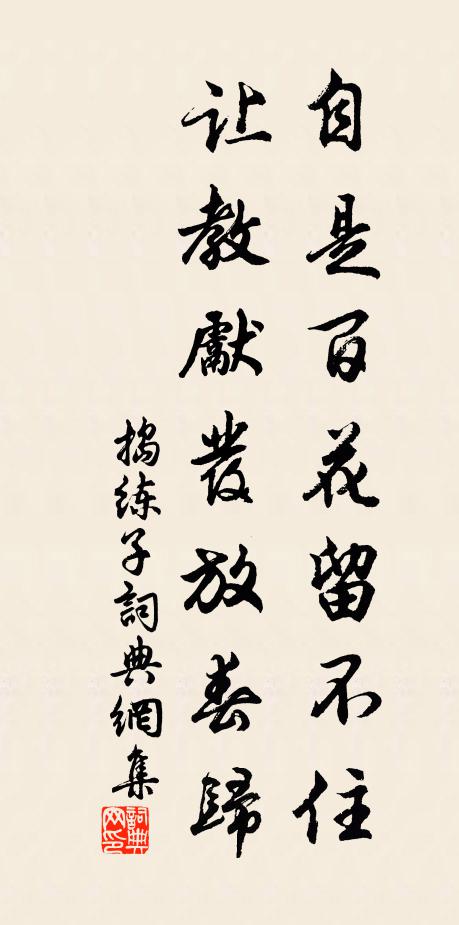 自是百花留不住
让教獻發放春歸
捣练子詞典網集
詞典
网印